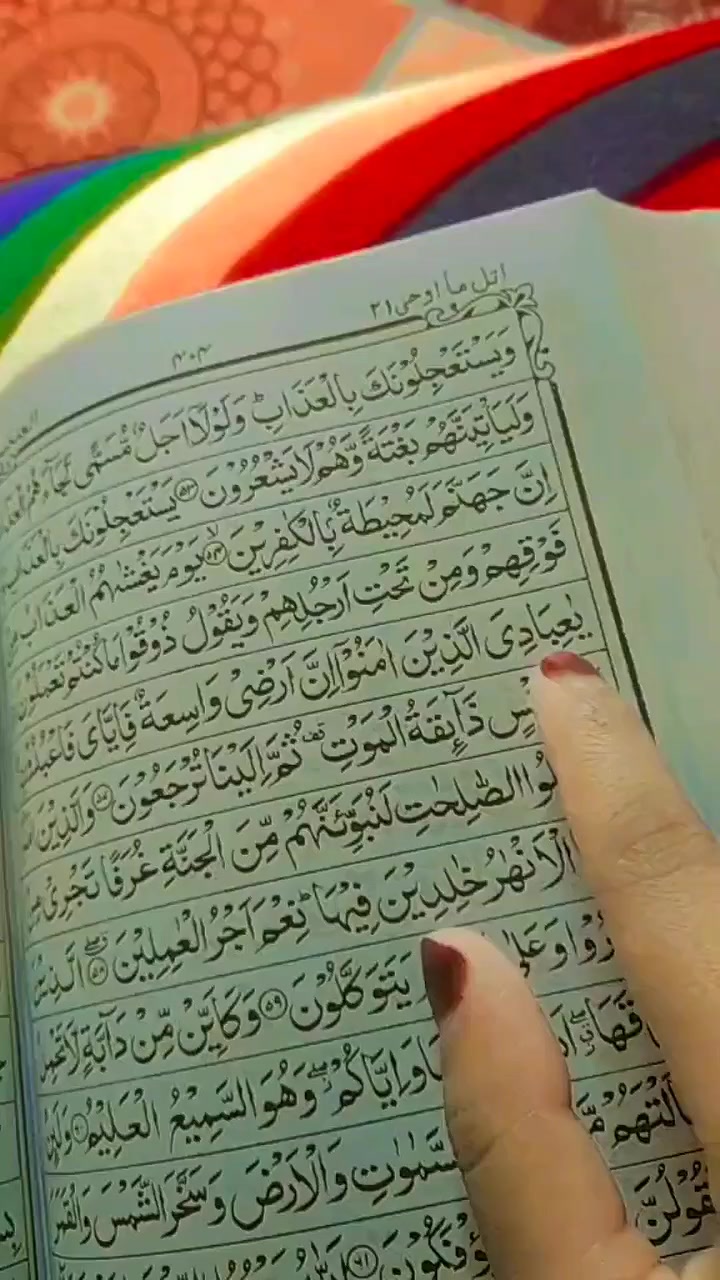 اتل ما اوحی ۲۱
۴۰۴
وَيَسْتَعْجِلُوْنَكَ بِالْعَذَابِ ؕ وَلَوْلَاۤ اَجَلٌ مُّسَمًّى لَّجَآءَهُمُ
وَلَيَاْتِيَنَّهُمْ بَغْتَةً وَّهُمْ لَا يَشْعُرُوْنَ ﴿۵۳﴾ يَسْتَعْجِلُوْنَكَ بِالْعَذَابِ
اِنَّ جَهَنَّمَ لَمُحِيْطَةٌۢ بِالْكٰفِرِيْنَ ﴿۵۴﴾ يَوْمَ يَغْشٰىهُمُ الْعَذَابُ
فَوْقِهِمْ وَمِنْ تَحْتِ اَرْجُلِهِمْ وَيَقُوْلُ ذُوْقُوْا مَا كُنْتُمْ تَعْمَلُوْنَ
يٰعِبَادِىَ الَّذِيْنَ اٰمَنُوْۤا اِنَّ اَرْضِىْ وَاسِعَةٌ فَاِيَّاىَ
ذَآئِقَةُ الْمَوْتِ ثُمَّ اِلَيْنَا تُرْجَعُوْنَ ﴿۵۷﴾ وَالَّذِيْنَ
الصّٰلِحٰتِ لَنُبَوِّئَنَّهُمْ مِّنَ الْجَنَّةِ غُرَفًا تَجْرِىْ
الْاَنْهٰرُ خٰلِدِيْنَ فِيْهَا ؕ نِعْمَ اَجْرُ الْعٰمِلِيْنَ ﴿۵۸﴾ الَّذِيْنَ
يَتَوَكَّلُوْنَ ﴿۵۹﴾ وَكَاَيِّنْ مِّنْ دَآبَّةٍ لَّا
وَاِيَّاكُمْ وَهُوَ السَّمِيْعُ الْعَلِيْمُ ﴿۶۰﴾
وَالْاَرْضَ وَسَخَّرَ الشَّمْسَ وَالْقَمَرَ
﴿۶۱﴾